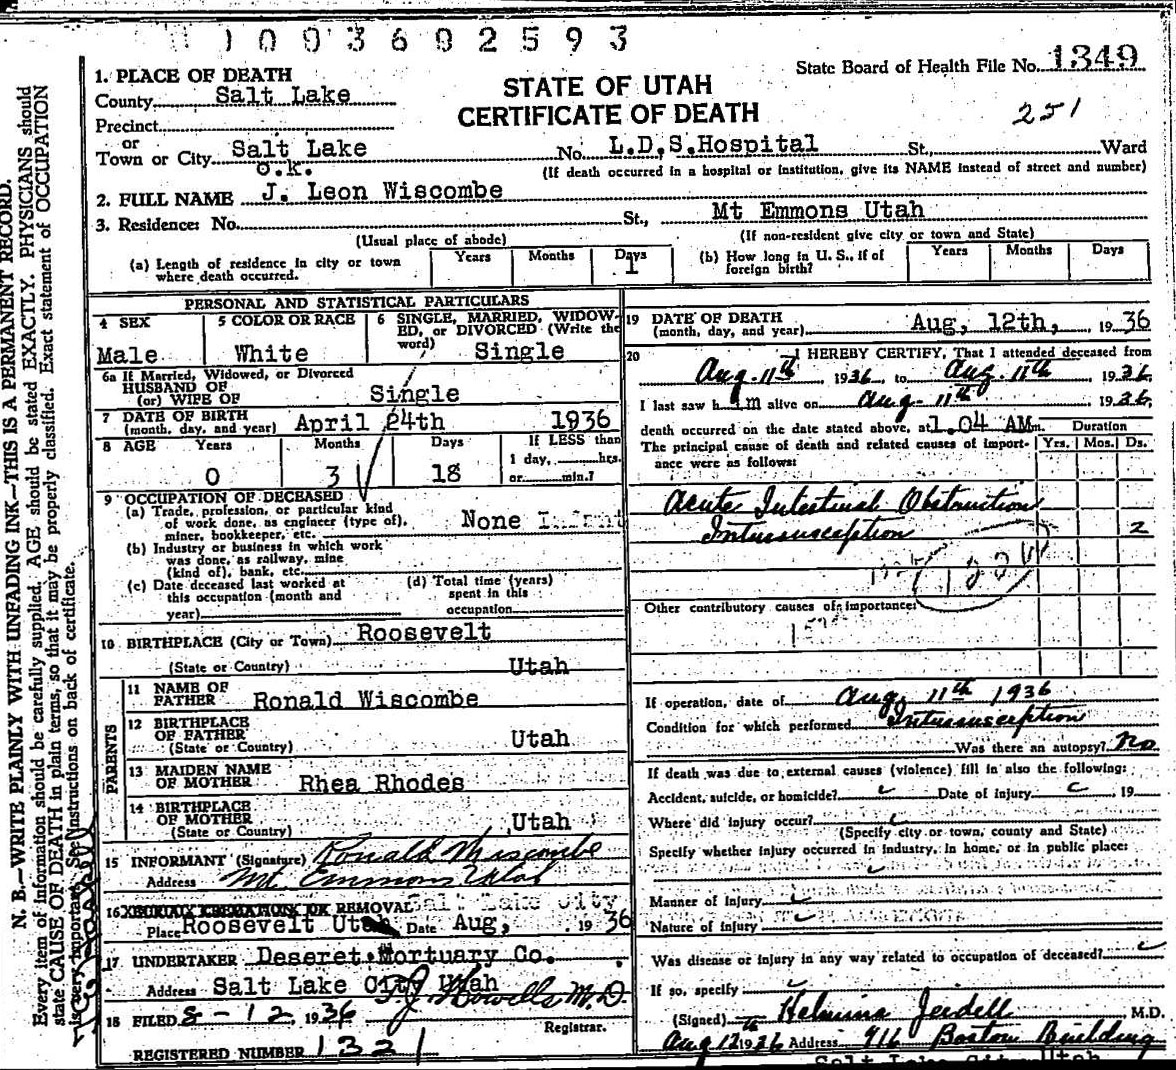 1003602593
State Board of Health File No. 1349
STATE OF UTAH
CERTIFICATE OF DEATH
251
1. PLACE OF DEATH
County Salt Lake
Precinct
or
Town or City Salt Lake No. L.D.S.Hospital St., Ward
o.k.
(If death occurred in a hospital or institution, give its NAME instead of street and number)
2. FULL NAME J. Leon Wiscombe
3. Residence: No. St., Mt Emmons Utah
(Usual place of abode) (If non-resident give city or town and State)
(a) Length of residence in city or town where death occurred. Years Months Days 1
(b) How long in U. S., if of foreign birth? Years Months Days
PERSONAL AND STATISTICAL PARTICULARS
4 SEX Male
5 COLOR OR RACE White
6 SINGLE, MARRIED, WIDOWED, or DIVORCED (Write the word) Single
6a If Married, Widowed, or Divorced
HUSBAND OF
(or) WIFE OF Single
7 DATE OF BIRTH
(month, day, and year) April 24th 1936
8 AGE Years Months Days If LESS than
1 day, hrs.
0 3 18 or min.?
9 OCCUPATION OF DECEASED
(a) Trade, profession, or particular kind
of work done, as engineer (type of),
miner, bookkeeper, etc. None Infant
(b) Industry or business in which work
was done, as railway, mine
(kind of), bank, etc.
(c) Date deceased last worked at
this occupation (month and
year)
(d) Total time (years)
spent in this
occupation
10 BIRTHPLACE (City or Town) Roosevelt
(State or Country) Utah
PARENTS
11 NAME OF
FATHER Ronald Wiscombe
12 BIRTHPLACE
OF FATHER
(State or Country) Utah
13 MAIDEN NAME
OF MOTHER Rhea Rhodes
14 BIRTHPLACE
OF MOTHER
(State or Country) Utah
15 INFORMANT (Signature) Ronald Wiscombe
Address Mt. Emmons Utah
16 BURIAL, CREMATION OR REMOVAL Salt Lake City
Place Roosevelt Utah Date Aug, 1936
17 UNDERTAKER Deseret Mortuary Co.
Address Salt Lake City Utah
18 FILED 8-12, 1936 T.J. Howells M.D.
Registrar.
REGISTERED NUMBER 1321
19 DATE OF DEATH
(month, day, and year) Aug, 12th, 1936
20 I HEREBY CERTIFY, That I attended deceased from
Aug. 11th 1936, to Aug. 11th 1936.
I last saw him alive on Aug. 11th 1936,
death occurred on the date stated above, at 1.04 AM m. Duration
The principal cause of death and related causes of importance were as follows: Yrs. Mos. Ds.
Acute Intestinal Obstruction
Intussusception 2
Other contributory causes of importance:
If operation, date of Aug. 11th 1936
Condition for which performed Intussusception
Was there an autopsy? No
If death was due to external causes (violence) fill in also the following:
Accident, suicide, or homicide? Date of injury 19
Where did injury occur?
(Specify city or town, county and State)
Specify whether injury occurred in industry, in home, or in public place:
Manner of Injury
Nature of Injury
Was disease or injury in any way related to occupation of deceased?
If so, specify
(Signed) M.D.
Aug 12th 1936 Address 916 Boston Building
Salt Lake City Utah
N. B.—WRITE PLAINLY WITH UNFADING INK—THIS IS A PERMANENT RECORD.
Every item of information should be carefully supplied. AGE should be stated EXACTLY. PHYSICIANS should
state CAUSE OF DEATH in plain terms, so that it may be properly classified. Exact statement of OCCUPATION
is very important. See instructions on back of certificate.